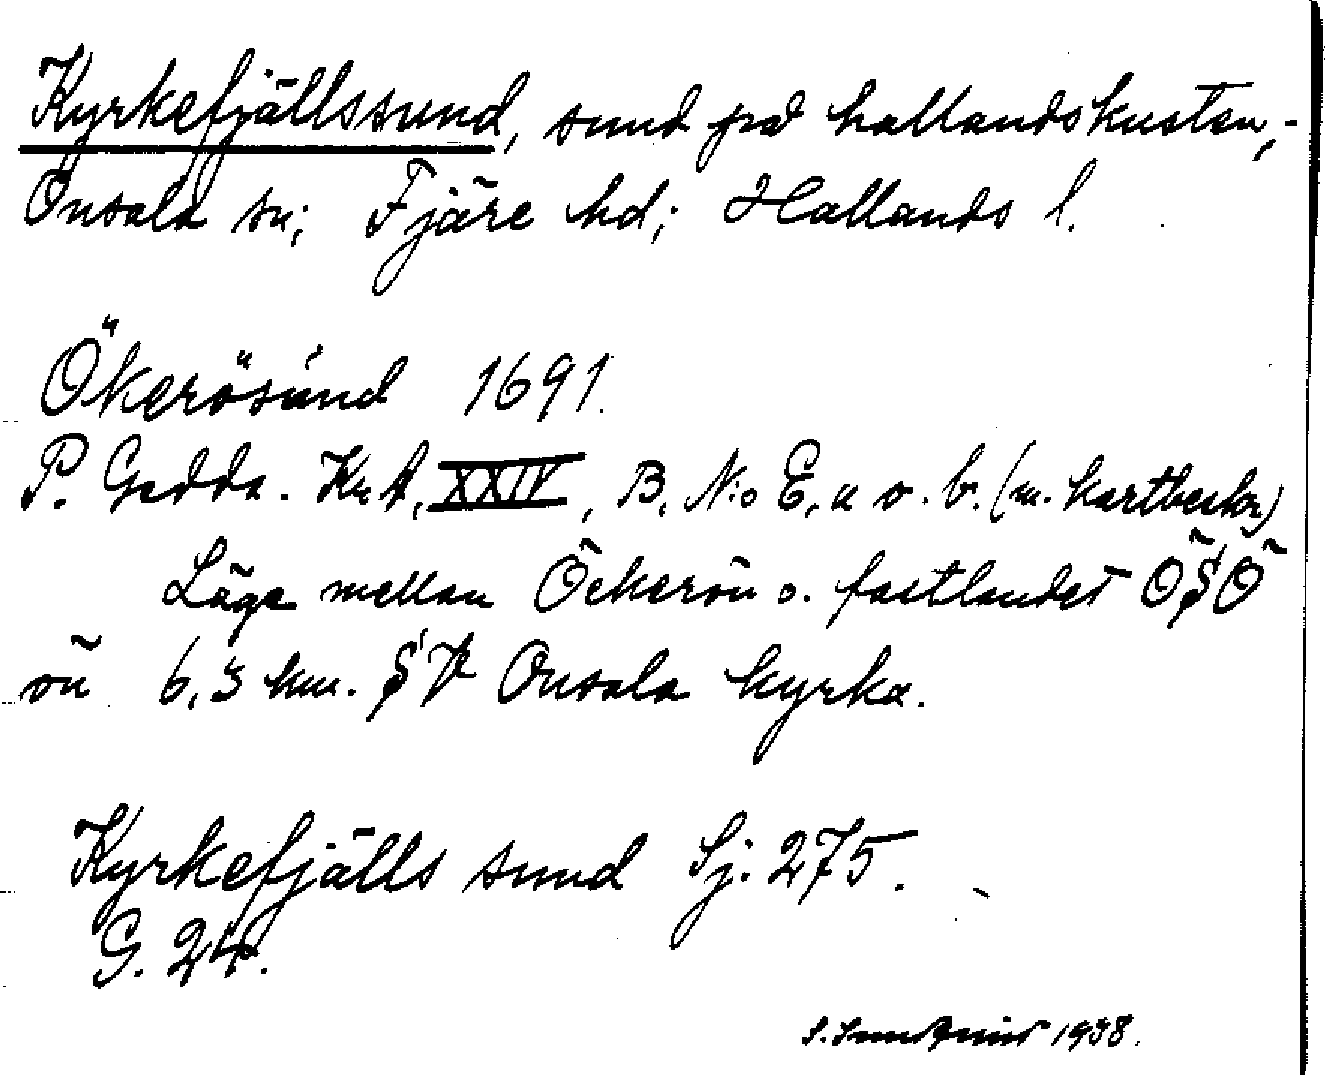 Kyrkefjällssund, sund på hallandskusten,
Onsala sn; Fjäre hd; Hallands l.
Ökerösund 1691.
P. Gedda. Kr.A. XXIV, B. N:o E. u o. b. (m. kartbeskr)
Läge mellan Öckerön o. fastlandet ÖSÖ
ön 6,3 km. SV Onsala kyrka.
Kyrkefjälls sund Sj. 275.
G. 24.
1938.